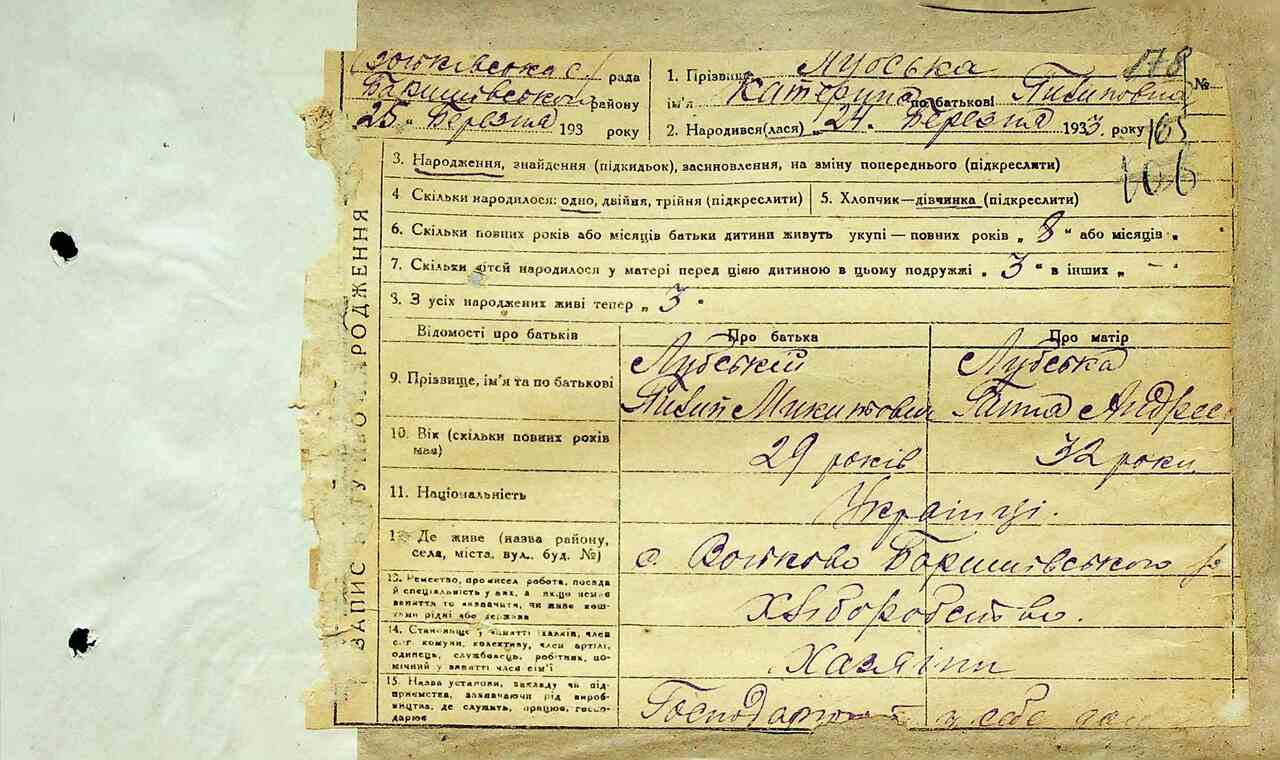 рада
району
25 " Березня 193 року
1. Прізвище Лубська
ім'я Катерина по батькові Пилиповна
2. Народився(лася) „ 24 " Березня 1933 року
178 №
165
166
ЗАПИС НАРОДЖЕННЯ
3. Народження, знайдення (підкидьок), засиновлення, на зміну попереднього (підкреслити)
4 Скільки народилося: одно, двійня, трійня (підкреслити) 5. Хлопчик—дівчинка (підкреслити)
6. Скільки повних років або місяців батьки дитини живуть укупі — повних років „ 8 " або місяців „ "
7. Скільки дітей народилося у матері перед цією дитиною в цьому подружжі „ 3 " в інших „ — "
8. З усіх народжених живі тепер „ 3 "
Відомості про батьків Про батька Про матір
9. Прізвище, ім'я та по батькові
Лубський Лубська
Пилип Микитович Ганна Андрее
10. Вік (скільки повних років має) 29 років 32 роки
11. Національність Українці.
12 Де живе (назва району, села, міста, вул., буд. №) с. Войтково Баришівського р
13. Ремество, промисел робота, посада й спеціальність у них, а якщо немає заняття то зазначити, чи живе коштами рідні або держава
Хліборобство.
14. Становище у занятті (халяїн, член с.-г. комуни, колективу, член артілі, одинець, службовець, робітник, помічний у занятті член сім'ї
Хазяїни
15. Назва установи, закладу чи підприємства, зазначаючи рід виробництва, де служить, працює, господарює
у себе